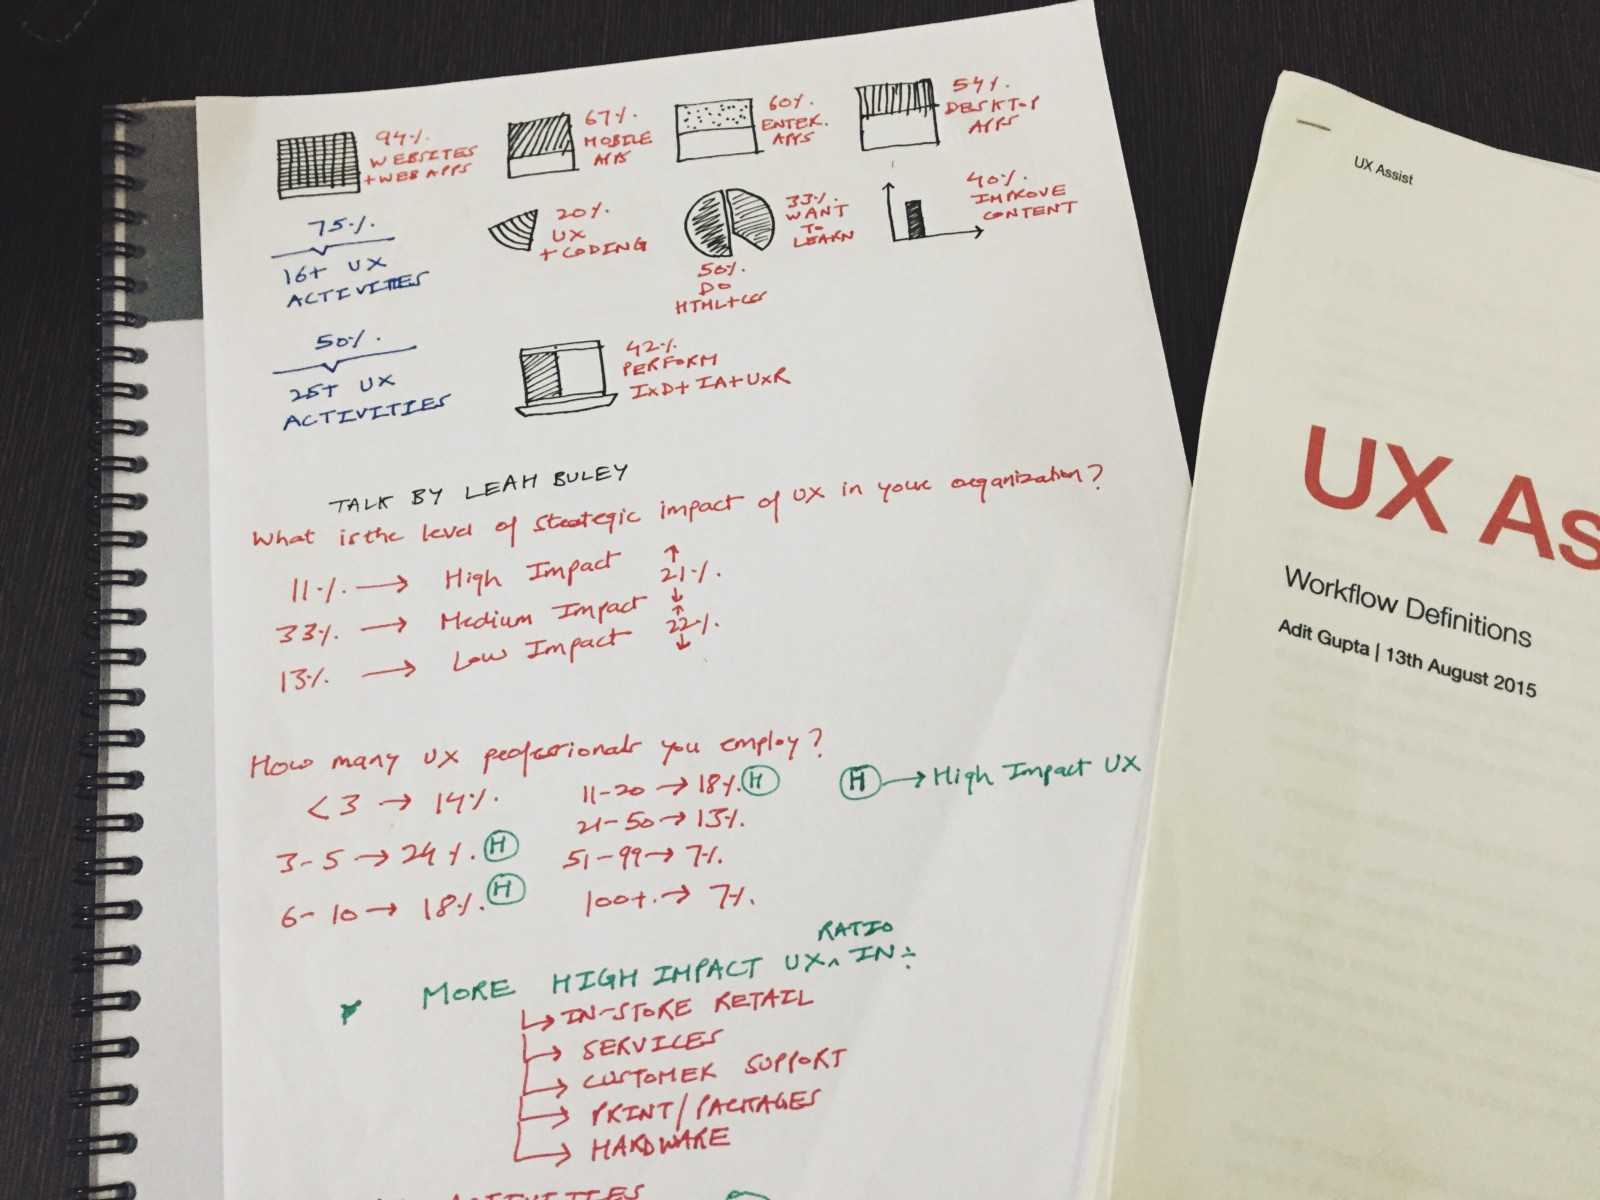 94%.
WEBSITES
+WEB APPS
67%.
MOBILE
APPS
60%.
ENTER.
APPS
54%.
DESKTOP
APPS
75%.
16+ UX
ACTIVITIES
20%.
UX
+CODING
50%.
DO
HTML+CSS
33%.
WANT
TO
LEARN
40%.
IMPROVE
CONTENT
50%.
25+ UX
ACTIVITIES
42%.
PERFORM
IxD+ IA+UxR
TALK BY LEAH BULEY
What is the level of strategic impact of UX in your organization?
11%. → High Impact ↑
21%.
↓
33%. → Medium Impact ↑
22%.
↓
13%. → Low Impact
How many UX professionals you employ?
<3 → 14%.
3-5 → 24%. H
6-10 → 18%. H
11-20 → 18%. H
21-50 → 13%.
51-99 → 7%.
100+. → 7%.
H → High Impact UX
MORE HIGH IMPACT UX ^ RATIO IN :-
→ IN-STORE RETAIL
→ SERVICES
→ CUSTOMER SUPPORT
→ PRINT/PACKAGES
→ HARDWARE
ACTIVITIES
UX Assist
UX As
Workflow Definitions
Adit Gupta | 13th August 2015